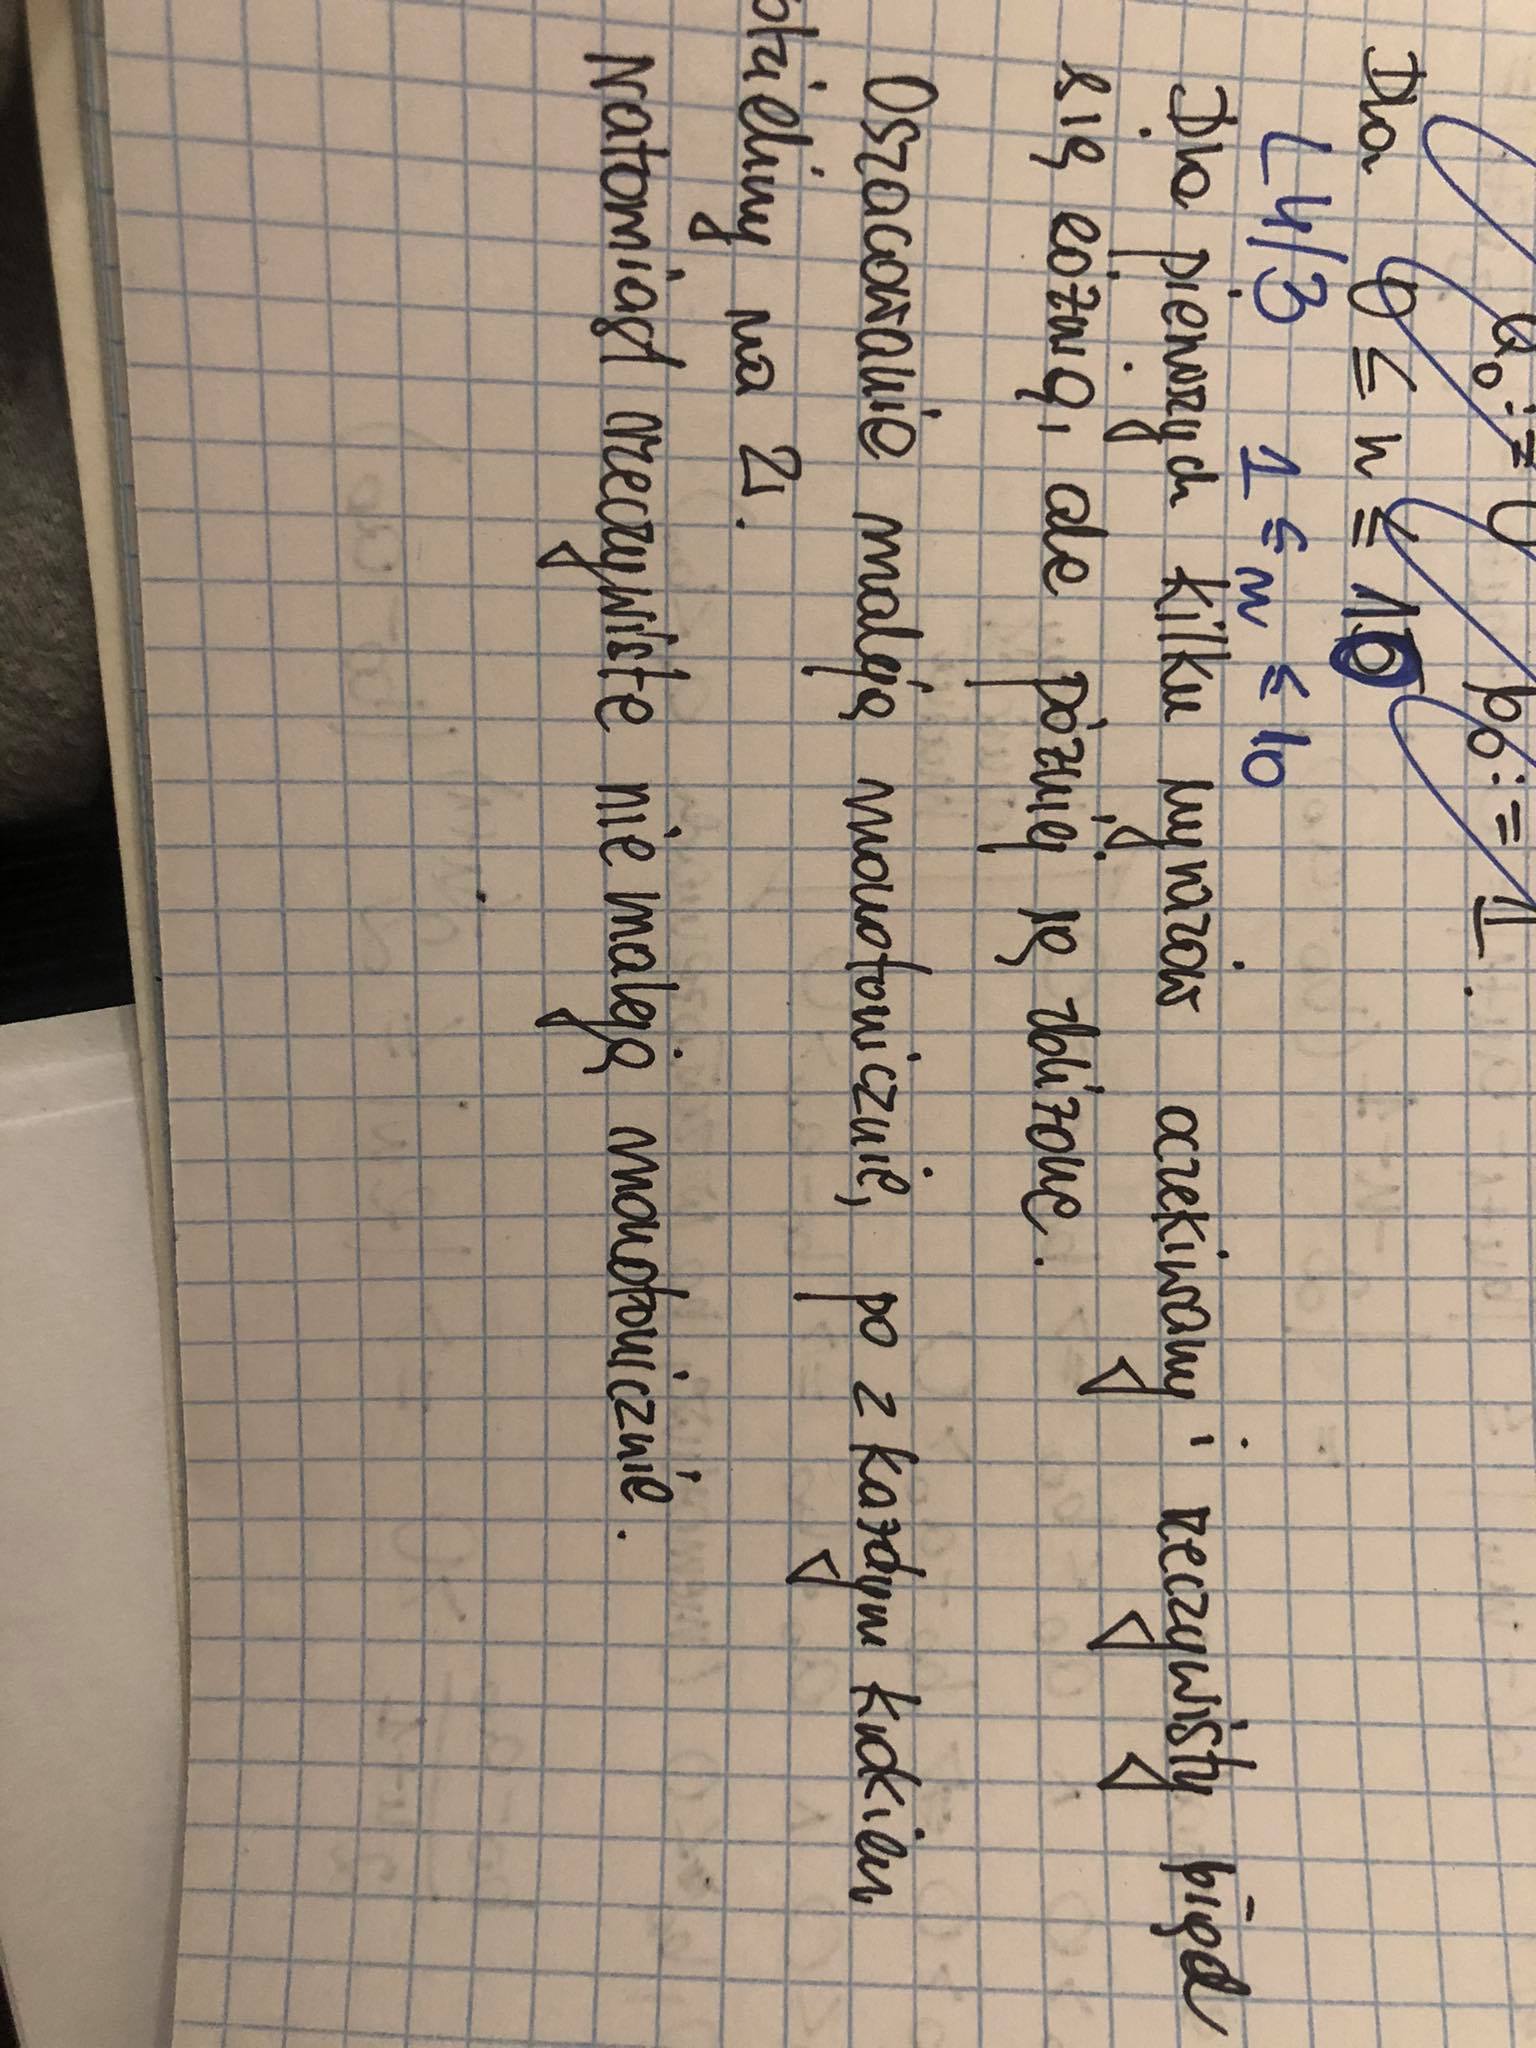 a₀ := 0 b₀ := 1.
Dla 0 ≤ n ≤ 10
L4/3 1 ≤ n ≤ 10
Dla pierwszych kilku wyrazów oczekiwany i rzeczywisty błąd
się różnią, ale później są zbliżone.
Oszacowanie maleją monotonicznie, po z każdym krokiem
dzielimy na 2.
Natomiast rzeczywiste nie maleją monotonicznie.